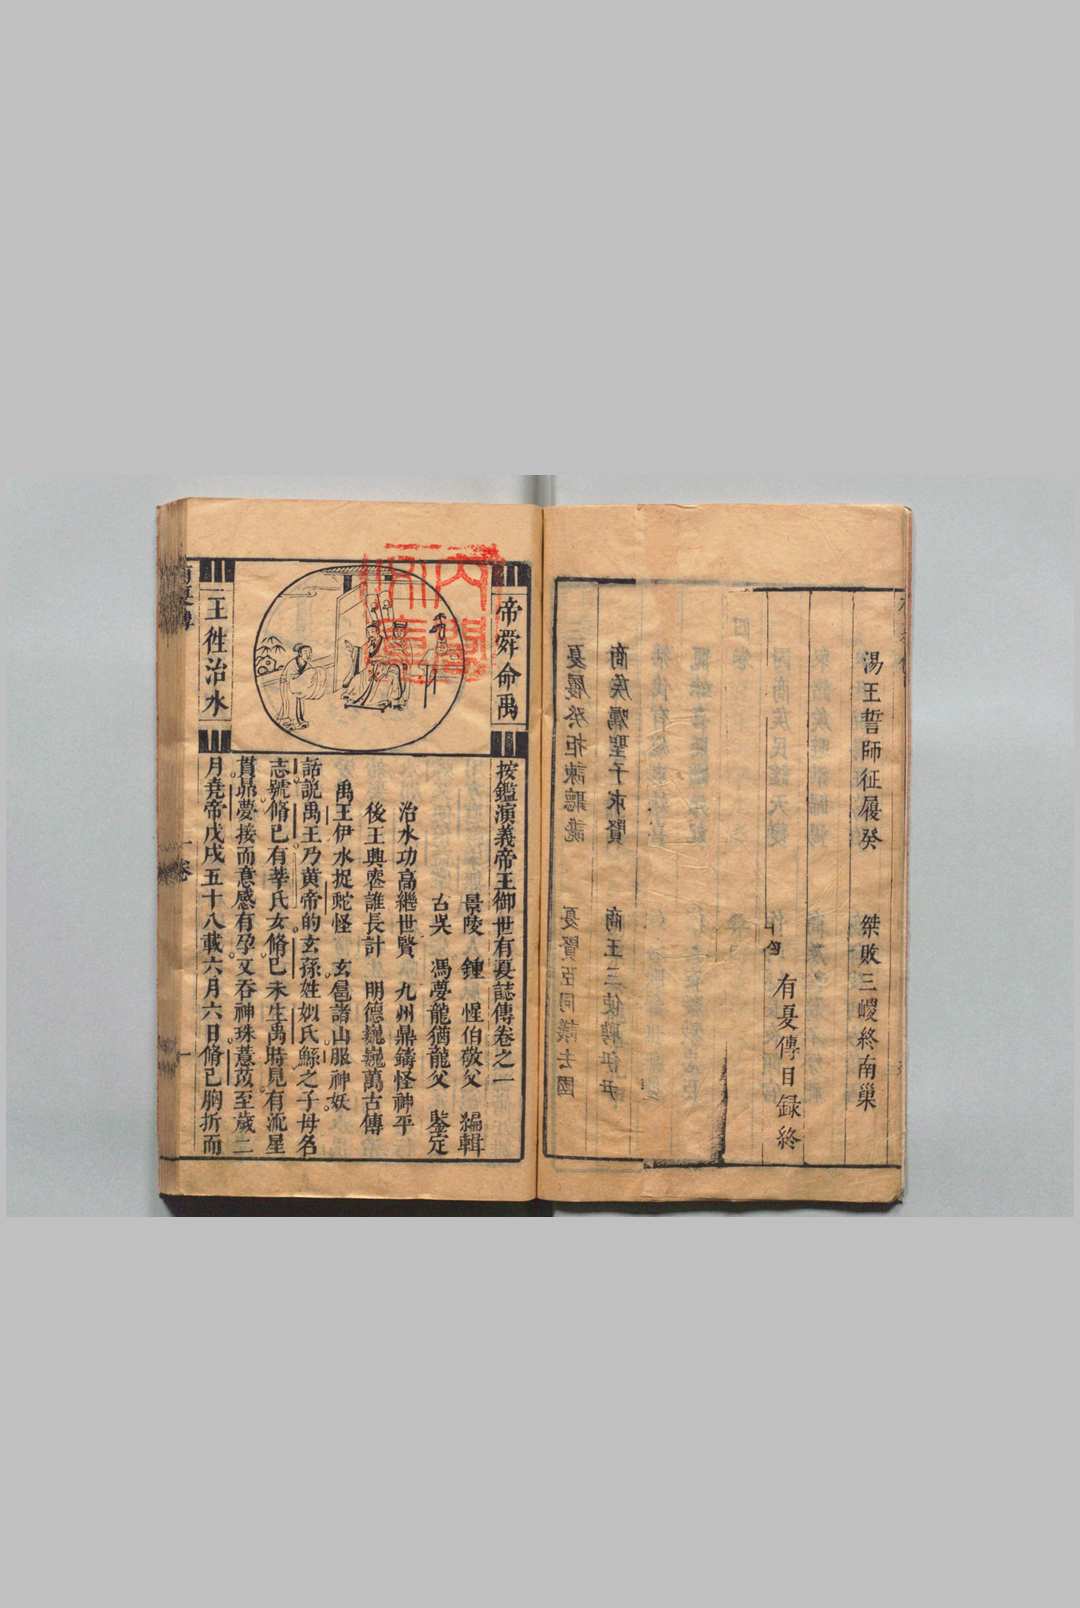 湯王誓師征履癸　桀敗三㚇終南巢
有夏傳目録終
帝舜命禹
二王徃治水
按鑑演義帝王御世有夏誌傳卷之一
景陵　鍾　惺伯敬父　編輯
古吳　馮夢龍猶龍父　鑒定
治水功高繼世賢　九州鼎鑄怪神平
後王興喪誰長計　明德巍巍萬古傳
禹王伊水捉蛇怪　玄扈諸山服神妖
話説禹王乃黄帝的玄孫姓姒氏鯀之子母名
志號脩已有莘氏女脩已未生禹時見有流星
貫昴夢接而意感有孕又吞神珠薏苡至歲二
月堯帝戊戌五十八載六月六日脩已胸折而
一卷
一
内閣文庫